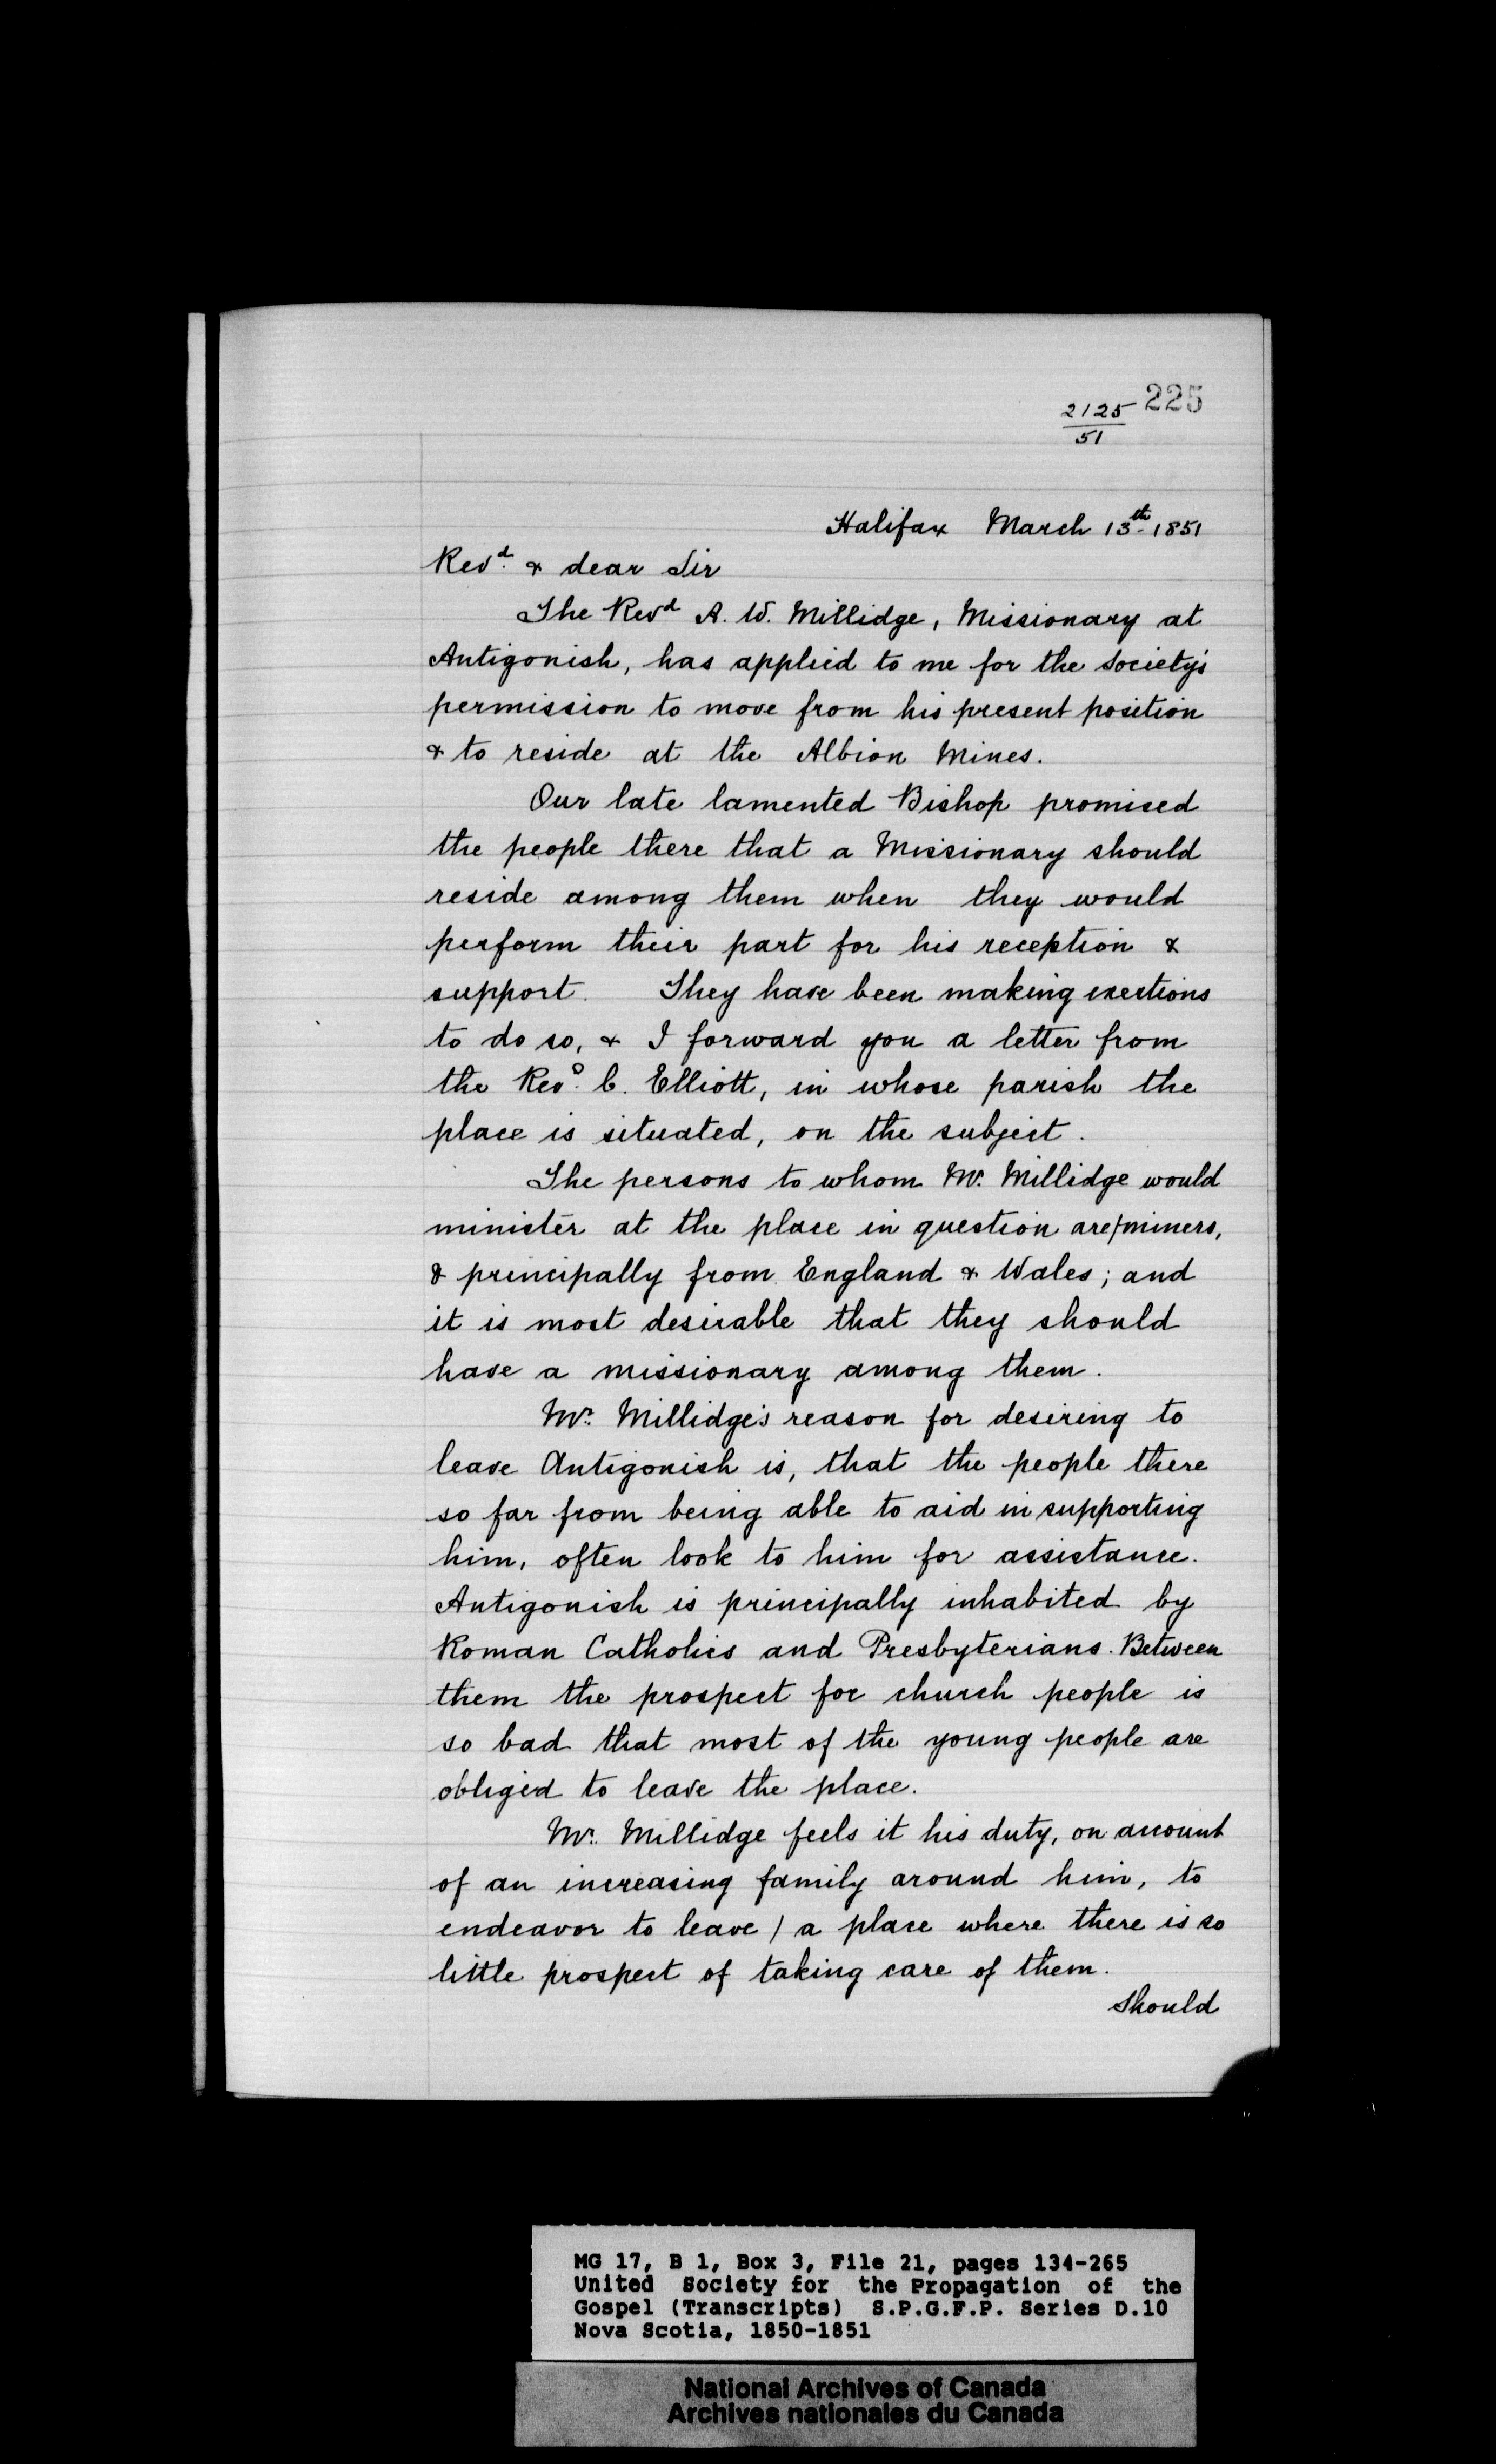 225
2125
51
Halifax March 13th 1851
Revd. & dear Sir
The Revd A. W. Millidge, Missionary at
Antigonish, has applied to me for the Society's
permission to move from his present position
& to reside at the Albion Mines.
Our late lamented Bishop promised
the people there that a Missionary should
reside among them when they would
perform their part for his reception &
support. They have been making exertions
to do so, & I forward you a letter from
the RevD. C. Elliott, in whose parish the
place is situated, on the subject.
The persons to whom Mr. Millidge would
minister at the place in question are/miners,
& principally from England & Wales; and
it is most desirable that they should
have a missionary among them.
Mr. Millidge's reason for desiring to
leave Antigonish is, that the people there
so far from being able to aid in supporting
him, often look to him for assistance.
Antigonish is principally inhabited by
Roman Catholics and Presbyterians. Between
them the prospect for church people is
so bad that most of the young people are
obliged to leave the place.
Mr. Millidge feels it his duty, on account
of an increasing family around him, to
endeavor to leave / a place where there is so
little prospect of taking care of them.
Should
MG 17, B 1, Box 3, File 21, pages 134-265
United Society for the Propagation of the
Gospel (Transcripts) S.P.G.F.P. Series D.10
Nova Scotia, 1850-1851
National Archives of Canada
Archives nationales du Canada